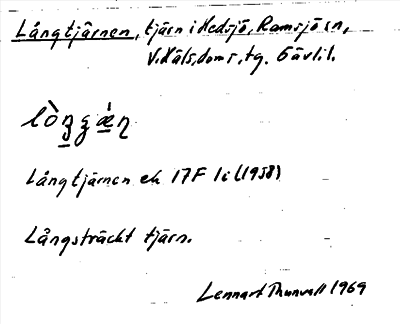 Långtjärnen, tjärn i Hedsjö, Ramsjö sn,
V. Häls. doms. tg. Gävl. l.
Långtjärnen ek 17F 1i (1958)
Långsträckt tjärn.
Lennart Thunvall 1969